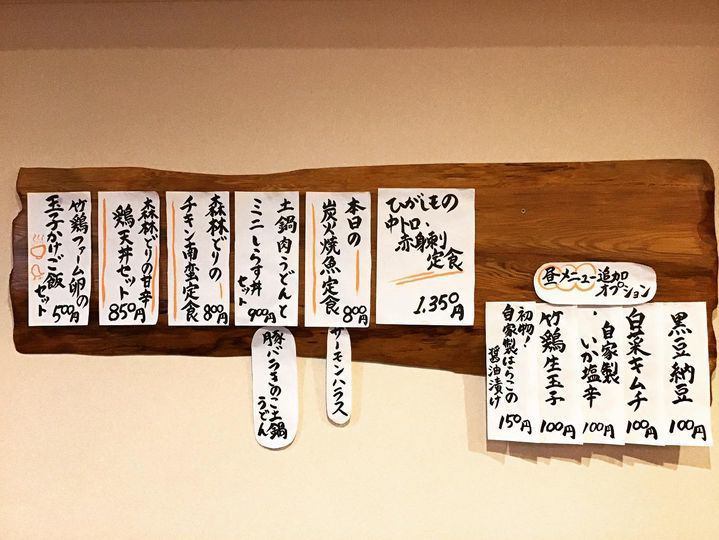 ひがしもの
中トロ、
赤身刺
定食
1,350円
本日の
炭火焼魚定食
800円
サーモンハラス
土鍋肉うどんと
ミニしらす丼
セット
900円
豚バラきのこ土鍋
うどん
森林どりの
チキン南蛮定食
800円
森林どりの甘辛
鶏天丼セット
850円
竹鶏ファーム卵の
玉子かけご飯
セット
500円
昼メニュー追加
オプション
黒豆納豆
100円
白菜キムチ
100円
自家製
いか塩辛
100円
竹鶏生玉子
100円
初物!
自家製はらこの
醤油漬け
150円